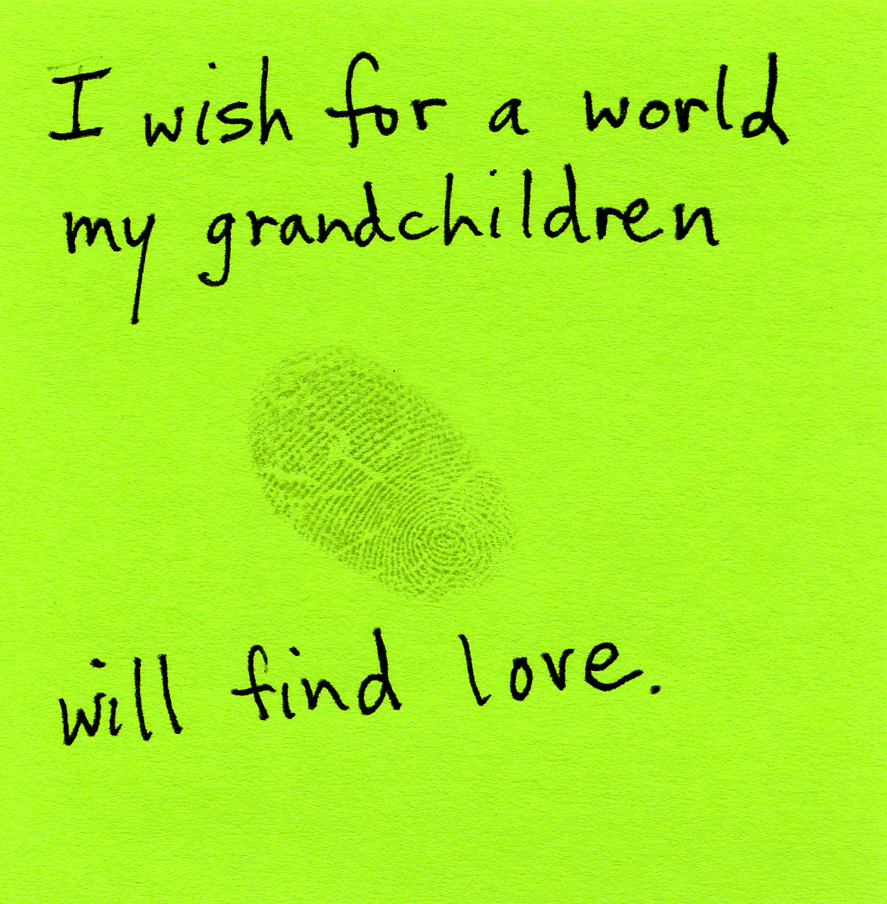 I wish for a world
my grandchildren
will find love.